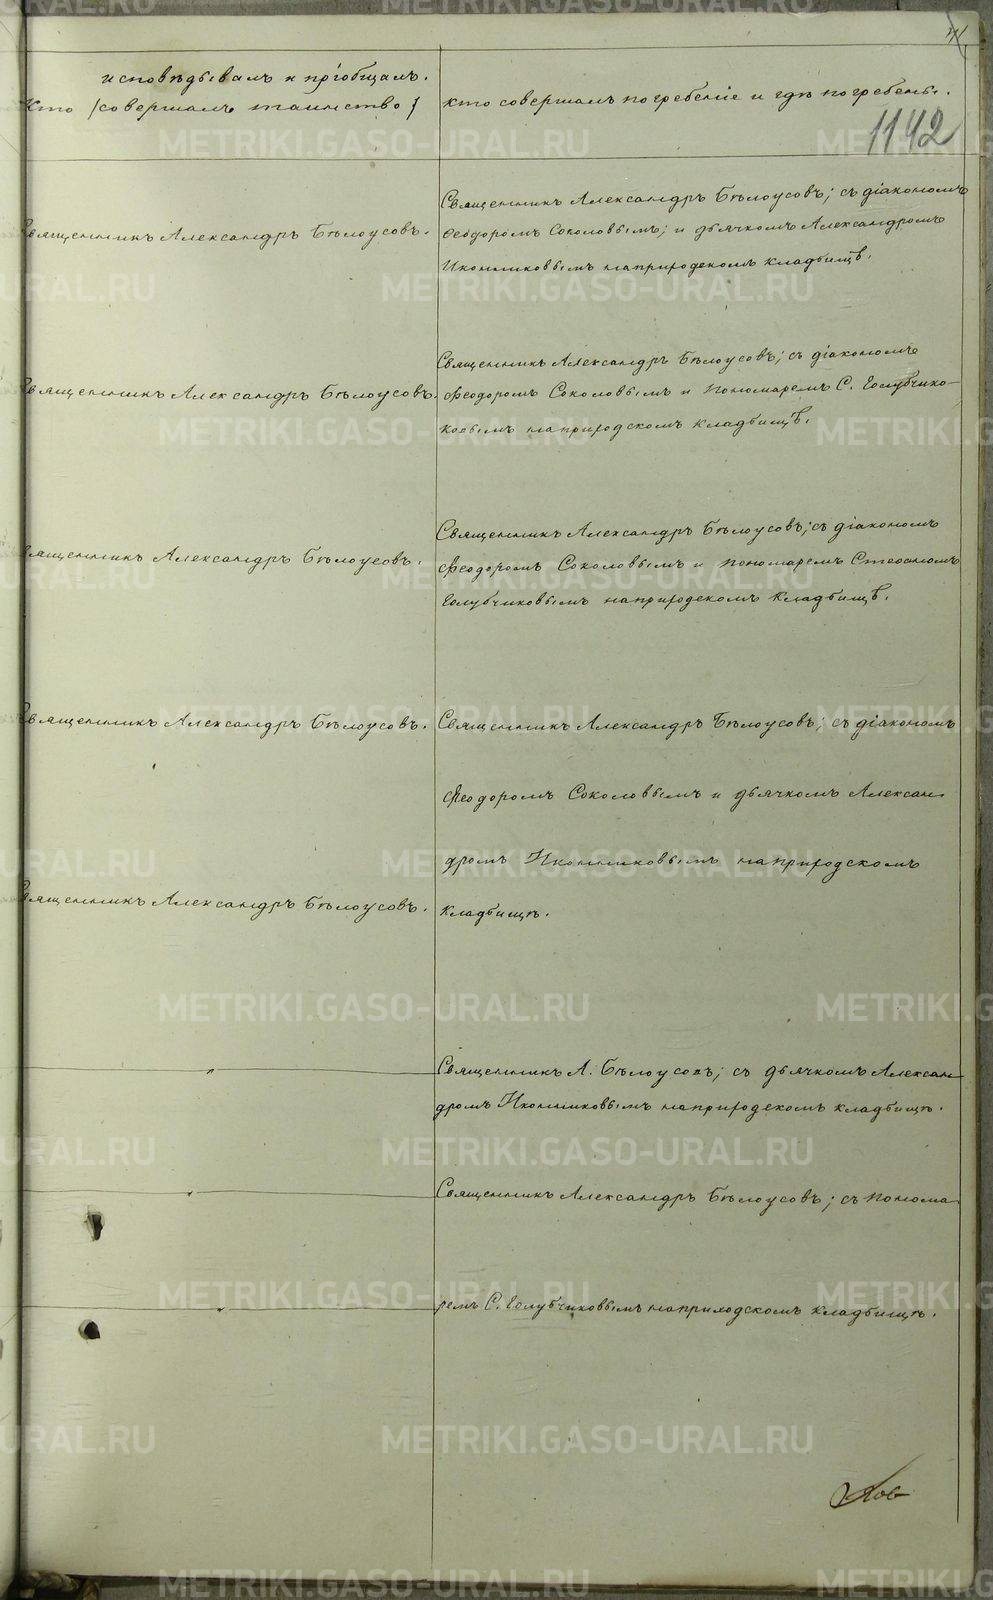 исповѣдывалъ и пріобщалъ.
Кто (совершалъ таинство)
кто совершалъ погребеніе и гдѣ погребены.
1142
Священникъ Александръ Бѣлоусовъ.
Священникъ Александръ Бѣлоусовъ; съ діакономъ
Ѳеодоромъ Соколовымъ; и дьячкомъ Александромъ
Иконниковымъ на приходскомъ кладбищѣ.
Священникъ Александръ Бѣлоусовъ.
Священникъ Александръ Бѣлоусовъ; съ діакономъ
Ѳеодоромъ Соколовымъ и пономаремъ С. Голубчико-
ковымъ на приходскомъ кладбищѣ.
Священникъ Александръ Бѣлоусовъ.
Священникъ Александръ Бѣлоусовъ; съ діакономъ
Ѳеодоромъ Соколовымъ и пономаремъ Стефаномъ
Голубчиковымъ на приходскомъ кладбищѣ.
Священникъ Александръ Бѣлоусовъ.
Священникъ Александръ Бѣлоусовъ; съ діакономъ
Ѳеодоромъ Соколовымъ и дьячкомъ Алексан-
дромъ Иконниковымъ на приходскомъ
Священникъ Александръ Бѣлоусовъ.
кладбищѣ.
"
Священникъ А. Бѣлоусовъ; съ дьячкомъ Алексан-
дромъ Иконниковымъ на приходскомъ кладбищѣ.
"
Священникъ Александръ Бѣлоусовъ; съ понома-
"
ремъ С. Голубчиковымъ на приходскомъ кладбищѣ.
METRIKI.GASO-URAL.RU